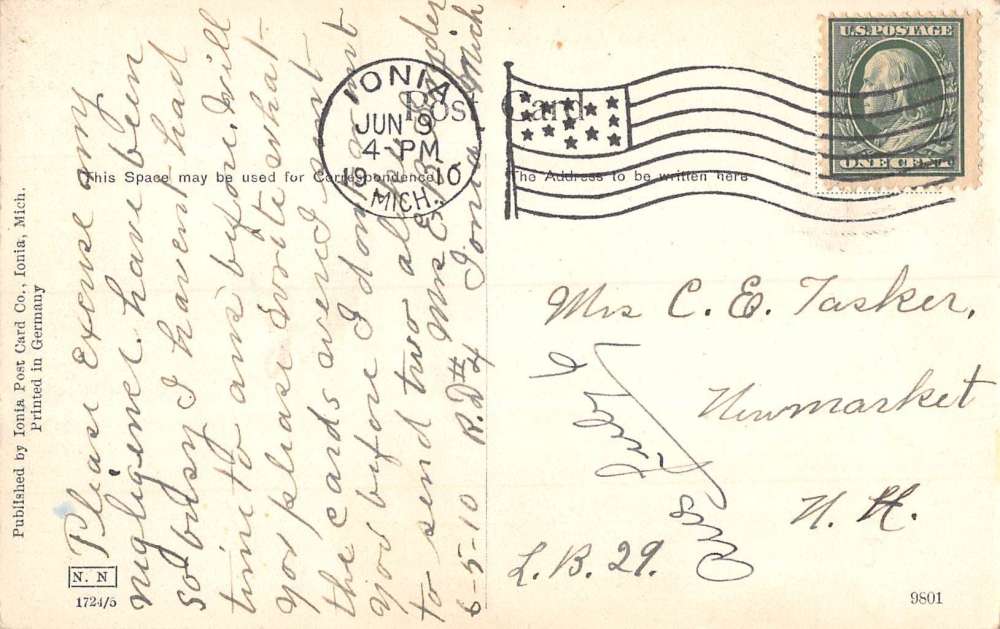 Post Card
This Space may be used for Correspondence
The Address to be written here
U.S. POSTAGE
ONE CENT
IONIA
JUN 9
4-PM
1910
MICH.
Please Excuse my
negligence have been
so busy I havent had
time to ans before, will
you please write what
the cards were I sent
you before I dont want
to send two alike
6-5-10 Mrs E Snyder
R.D. # 4 Ionia Mich
Mrs C. E. Tasker,
Newmarket
N. H.
L. B. 29.
Published by Ionia Post Card Co., Ionia, Mich.
Printed in Germany
N. N
1724/5
9801